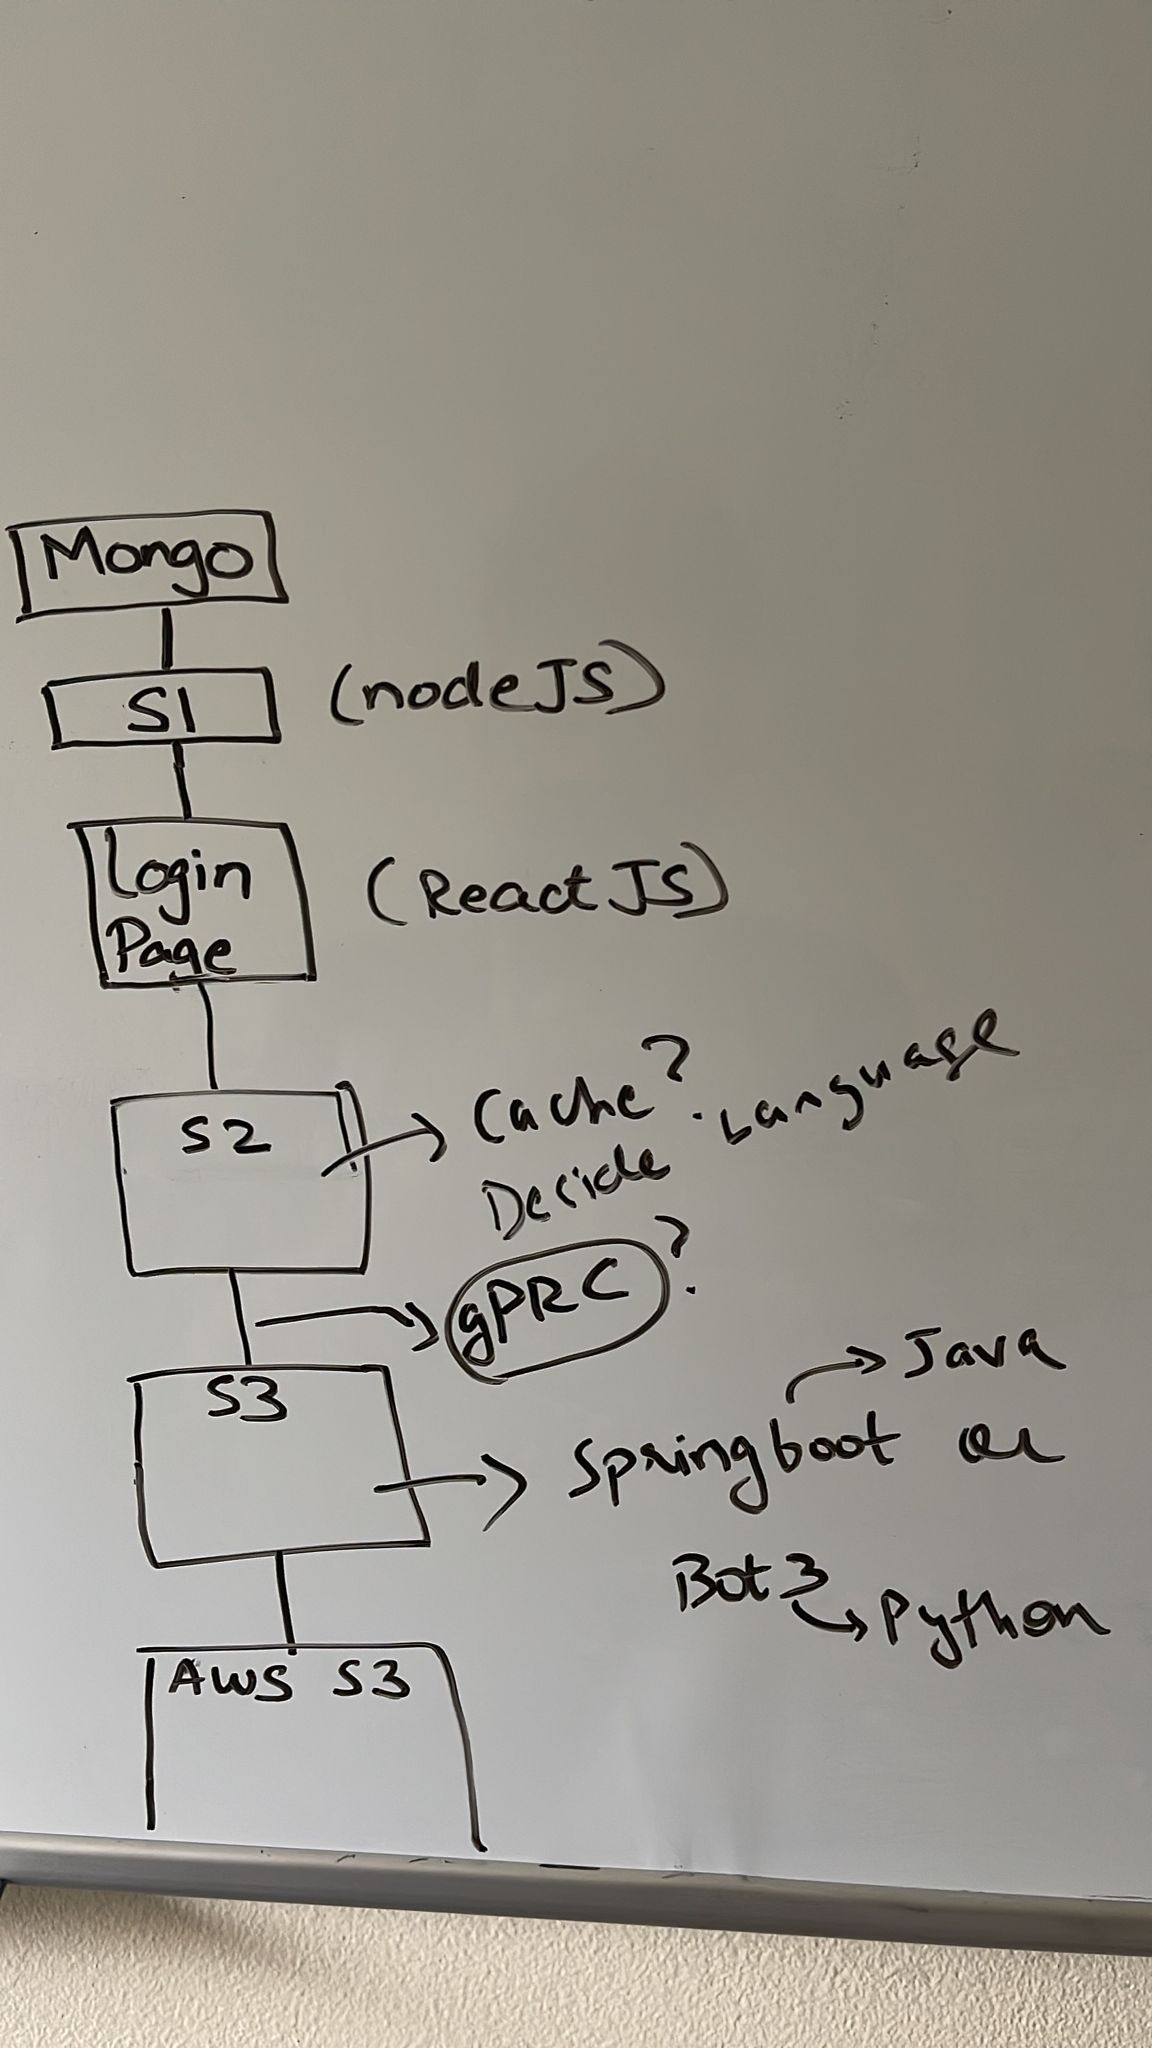 Mongo
S1 (nodeJS)
Login
Page
(ReactJS)
S2
Cache?
Decide Language
gPRC ?
S3
Java
Springboot or
Bot3
Python
AWS S3